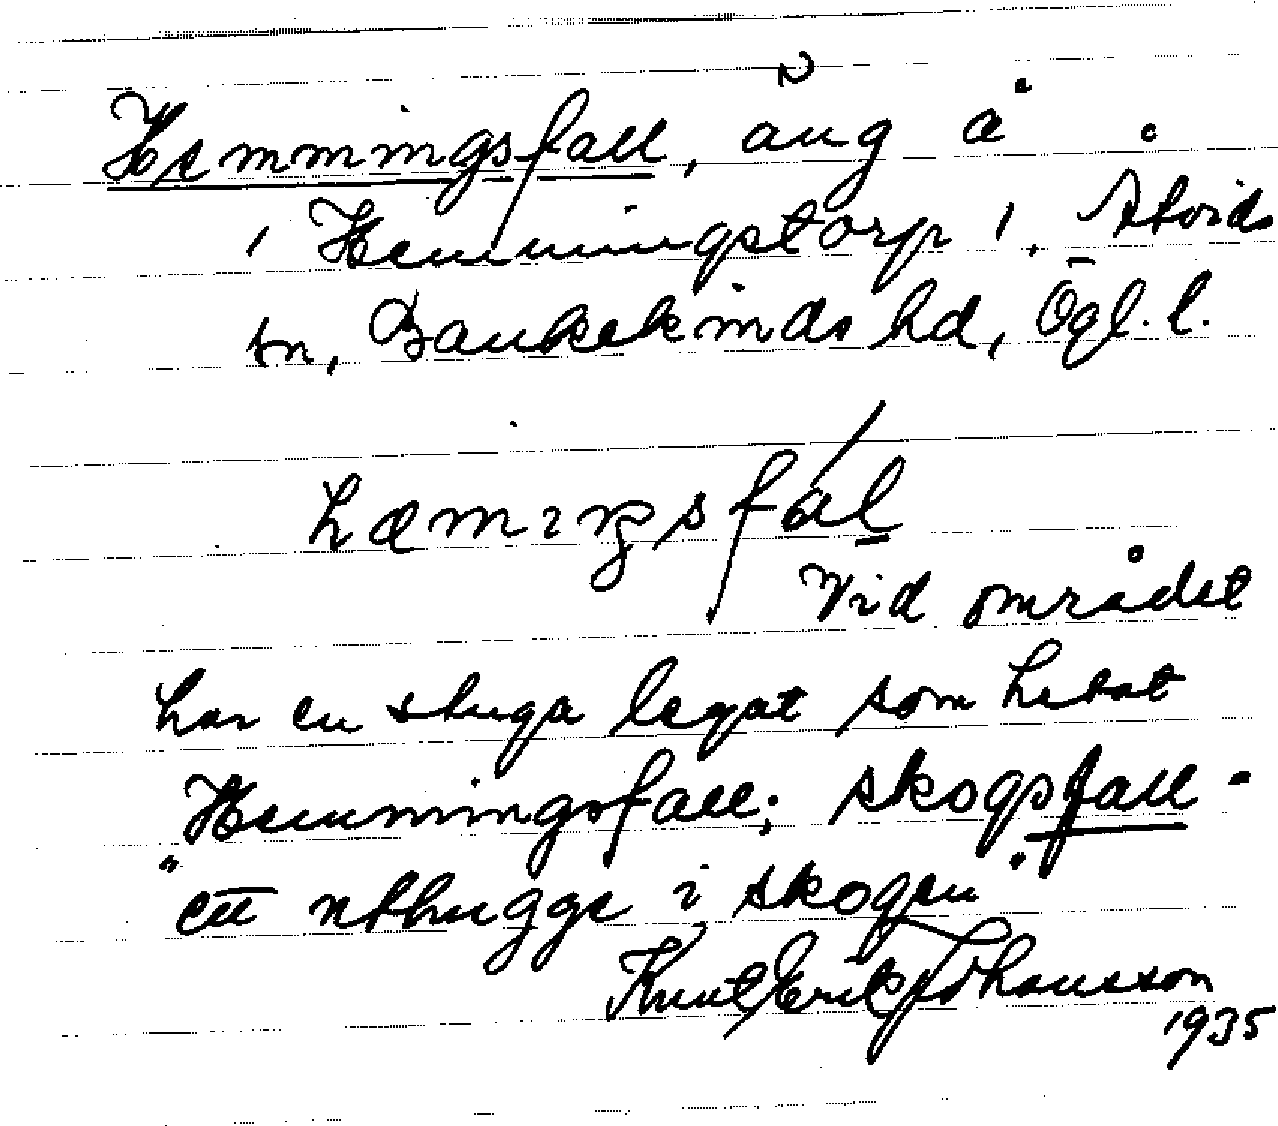 Hemmingsfall, äng å
1 Hemmingstorp 1, Åtvids
sn, Bankekinds hd, Ögl. l.
hæmıŋsfál
Vid området
har en stuga legat som hetat
Hemmingsfall; skogsfall -
"ett uthugge i skogen"
Knut Erik Johansson
1935